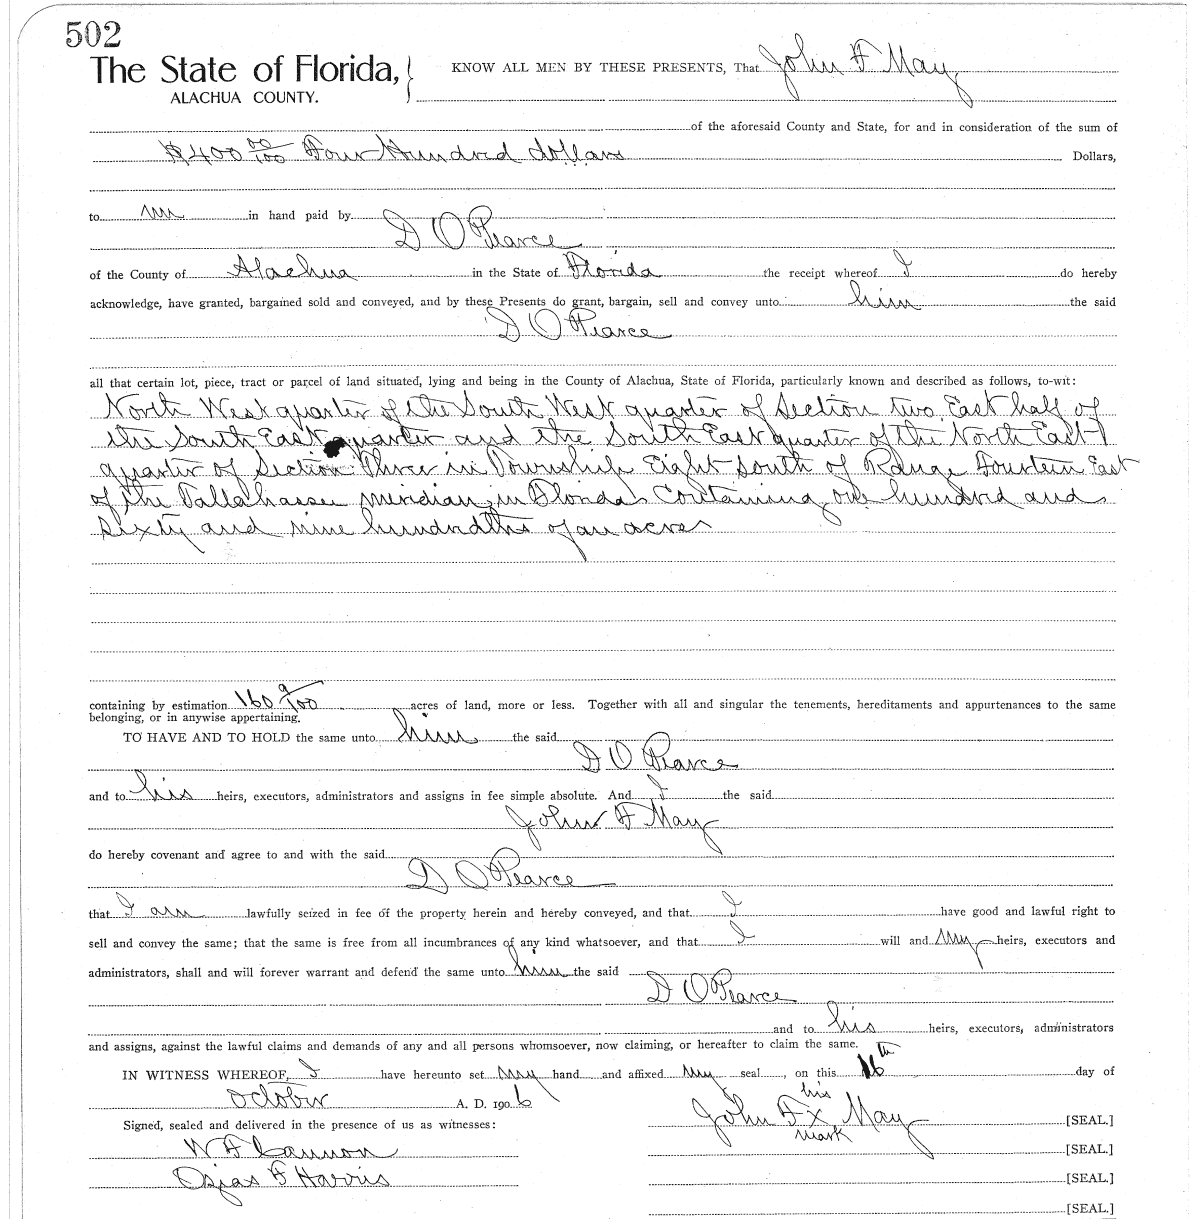 502
The State of Florida, } KNOW ALL MEN BY THESE PRESENTS, That John F May
ALACHUA COUNTY.
of the aforesaid County and State, for and in consideration of the sum of
$400 00/100 Four Hundred dollars Dollars,
to me in hand paid by
D O Pearce
of the County of Alachua in the State of Florida the receipt whereof I do hereby
acknowledge, have granted, bargained sold and conveyed, and by these Presents do grant, bargain, sell and convey unto him the said
D O Pearce
all that certain lot, piece, tract or parcel of land situated, lying and being in the County of Alachua, State of Florida, particularly known and described as follows, to-wit:
North West quarter of the South West quarter of Section two East half of
the South East quarter and the South East quarter of the North East
quarter of Section Three in Township Eight South of Range Fourteen East
of the Tallahassee meridian in Florida Containing one hundred and
sixty and nine hundredths of an acres
containing by estimation 160 9/100 acres of land, more or less. Together with all and singular the tenements, hereditaments and appurtenances to the same
belonging, or in anywise appertaining.
TO HAVE AND TO HOLD the same unto him the said
D O Pearce
and to his heirs, executors, administrators and assigns in fee simple absolute. And I the said
John F May
do hereby covenant and agree to and with the said
D O Pearce
that I am lawfully seized in fee of the property herein and hereby conveyed, and that I have good and lawful right to
sell and convey the same; that the same is free from all incumbrances of any kind whatsoever, and that I will and my heirs, executors and
administrators, shall and will forever warrant and defend the same unto him the said
D O Pearce
and to his heirs, executors, administrators
and assigns, against the lawful claims and demands of any and all persons whomsoever, now claiming, or hereafter to claim the same.
IN WITNESS WHEREOF, I have hereunto set my hand and affixed my seal, on this 16th day of
October A. D. 1906
his
John F x May [SEAL.]
mark
Signed, sealed and delivered in the presence of us as witnesses:
W F Cannon [SEAL.]
Osjas F Harris [SEAL.]
[SEAL.]